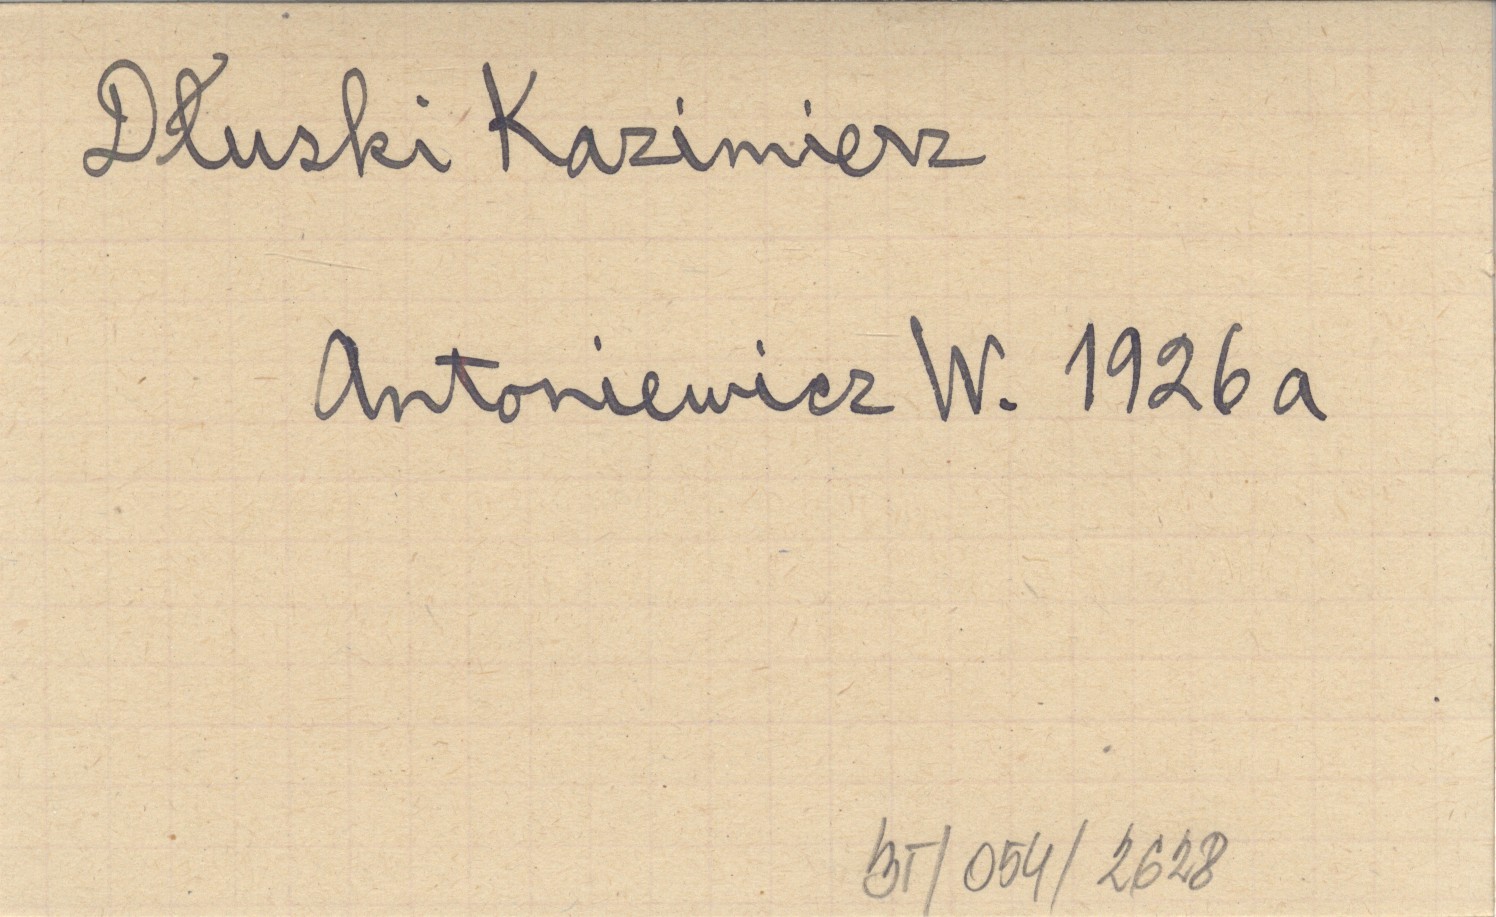 Dłuski Kazimierz
Antoniewicz W. 1926a
BT/054/2628